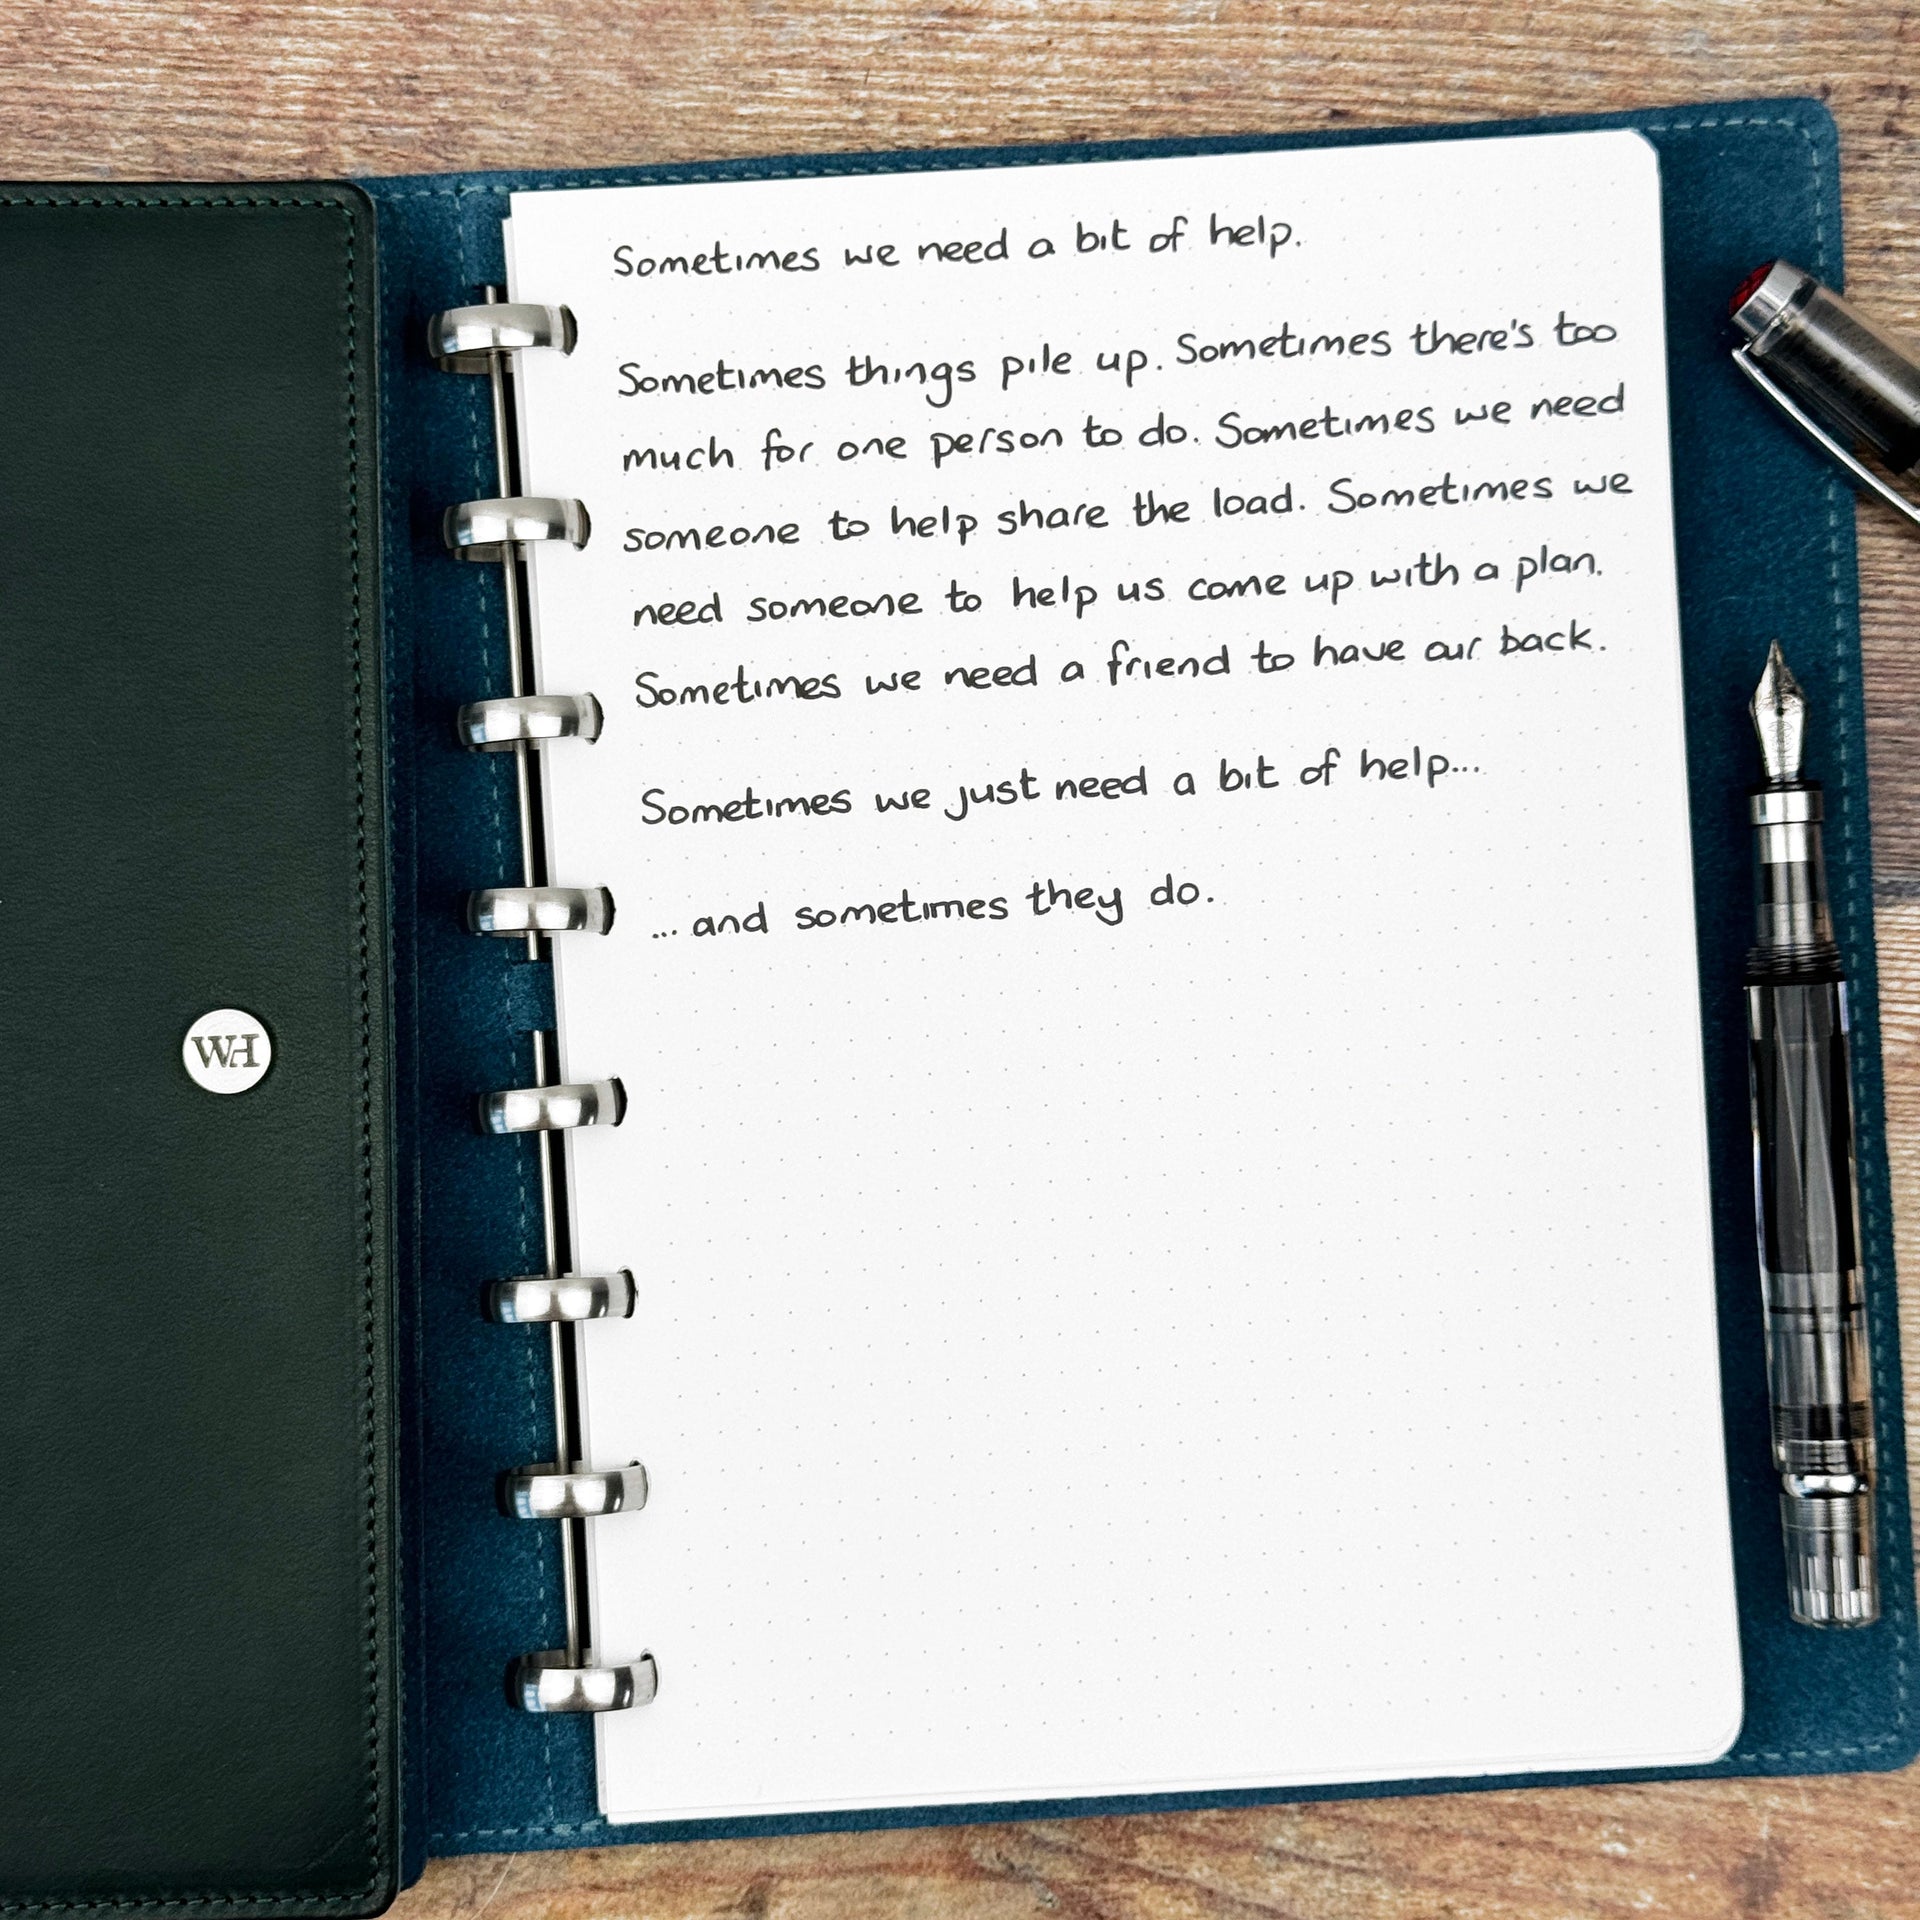 Sometimes we need a bit of help.
Sometimes things pile up. Sometimes there's too
much for one person to do. Sometimes we need
someone to help share the load. Sometimes we
need someone to help us come up with a plan.
Sometimes we need a friend to have our back.
Sometimes we just need a bit of help...
... and sometimes they do.
WH